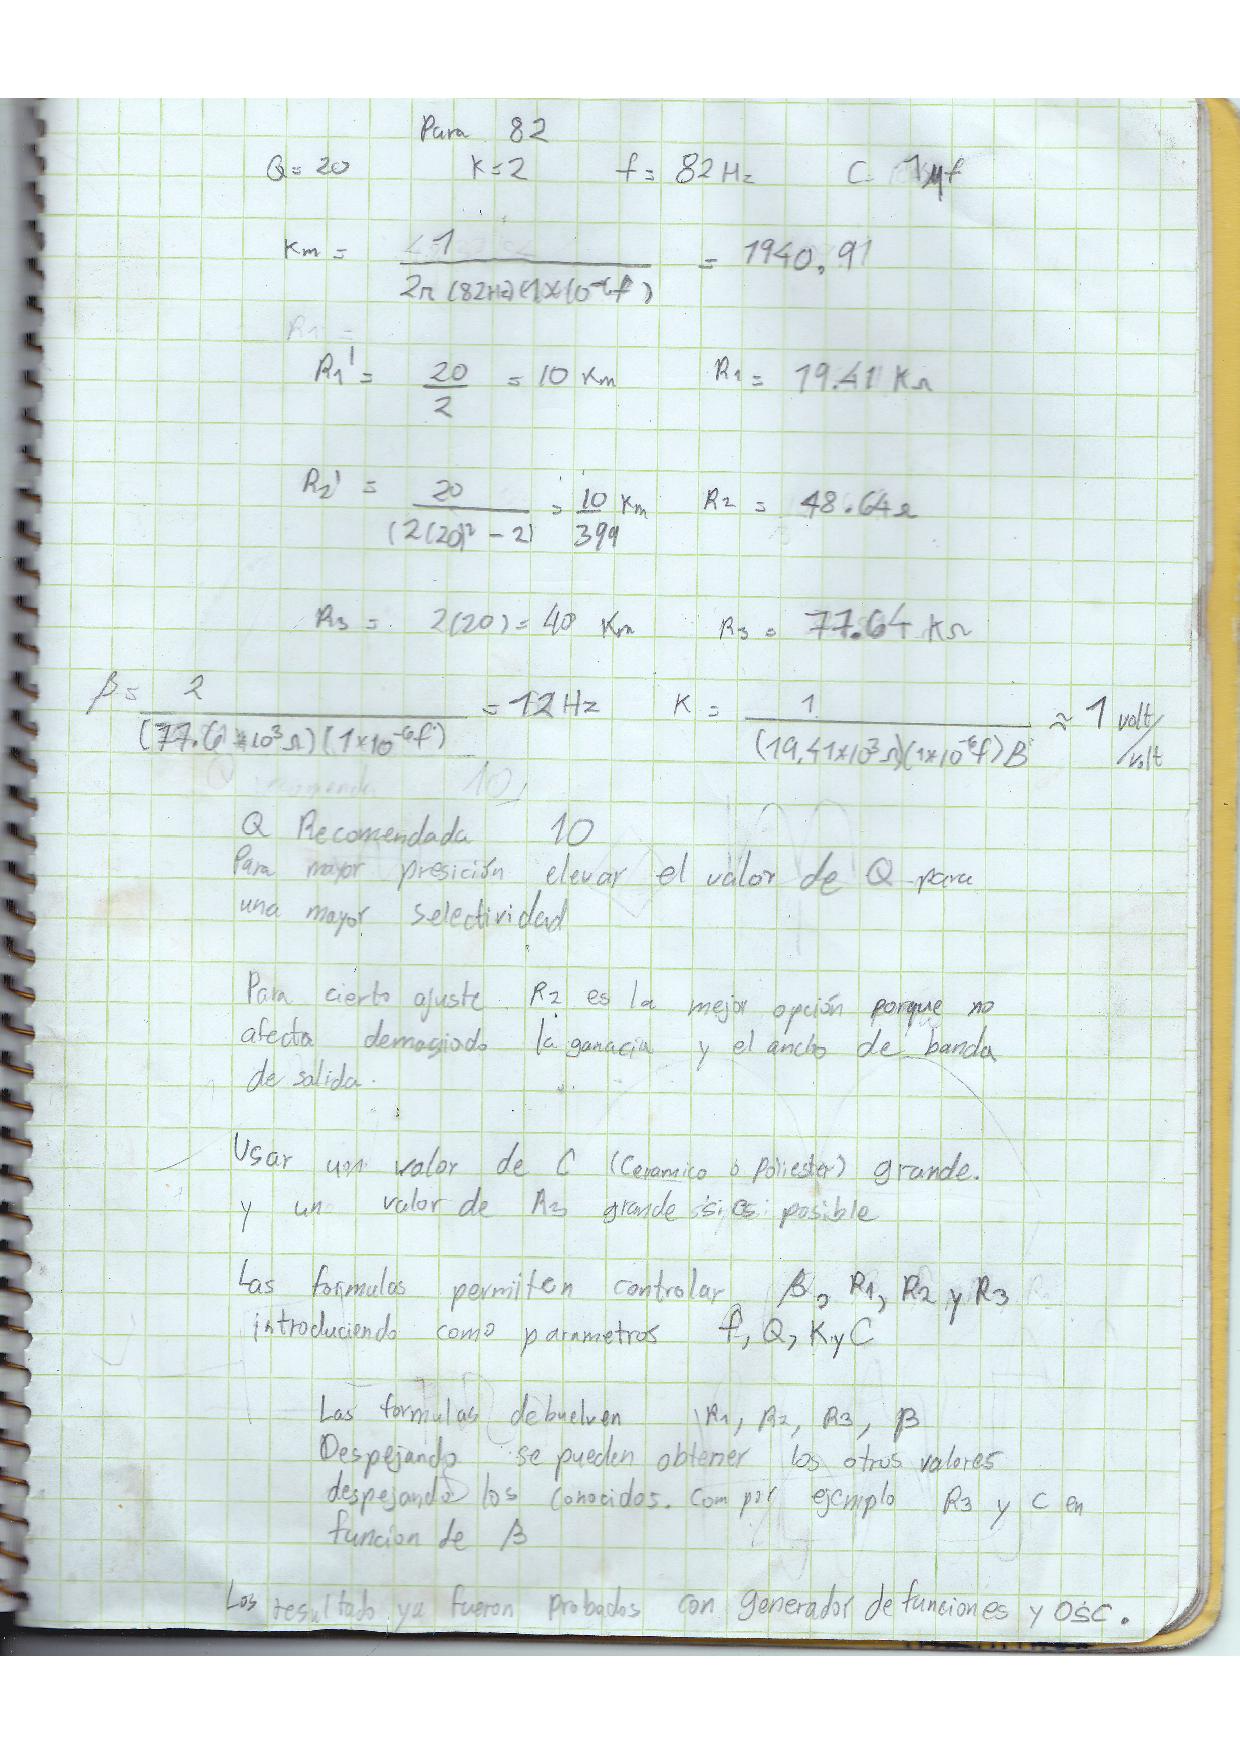 Para 82
Q = 20 K = 2 f = 82 Hz C = 1µf
Km = 1 / 2π (82Hz)(1x10⁻⁶f) = 1940.91
R1 =
R1' = 20/2 = 10 Km R1 = 19.41 KΩ
R2' = 20 / (2(20)² - 2) = 10/399 Km R2 = 48.64Ω
R3 = 2(20) = 40 Km R3 = 77.64 KΩ
β = 2 / (77.6 x10³Ω)(1x10⁻⁶f) = 12 Hz K = 1 / (19,41x10³Ω)(1x10⁻⁶f)B ≈ 1 volt/volt
Q Recomendada 10
Para mayor presición elevar el valor de Q para
una mayor selectividad
Para cierto ajuste R2 es la mejor opción porque no
afecta demasiado la ganacia y el ancho de banda
de salida.
Usar un valor de C (Ceramico o Poliester) grande.
y un valor de R3 grande si es posible
Las formulas permiten controlar β, R1, R2 y R3
introduciendo como parametros f, Q, K y C
Las formulas debuelven R1, R2, R3, β
Despejando se pueden obtener los otros valores
despejando los conocidos. Com por ejemplo R3 y C en
funcion de β
Los resultado ya fueron probados con generador de funciones y OSC.